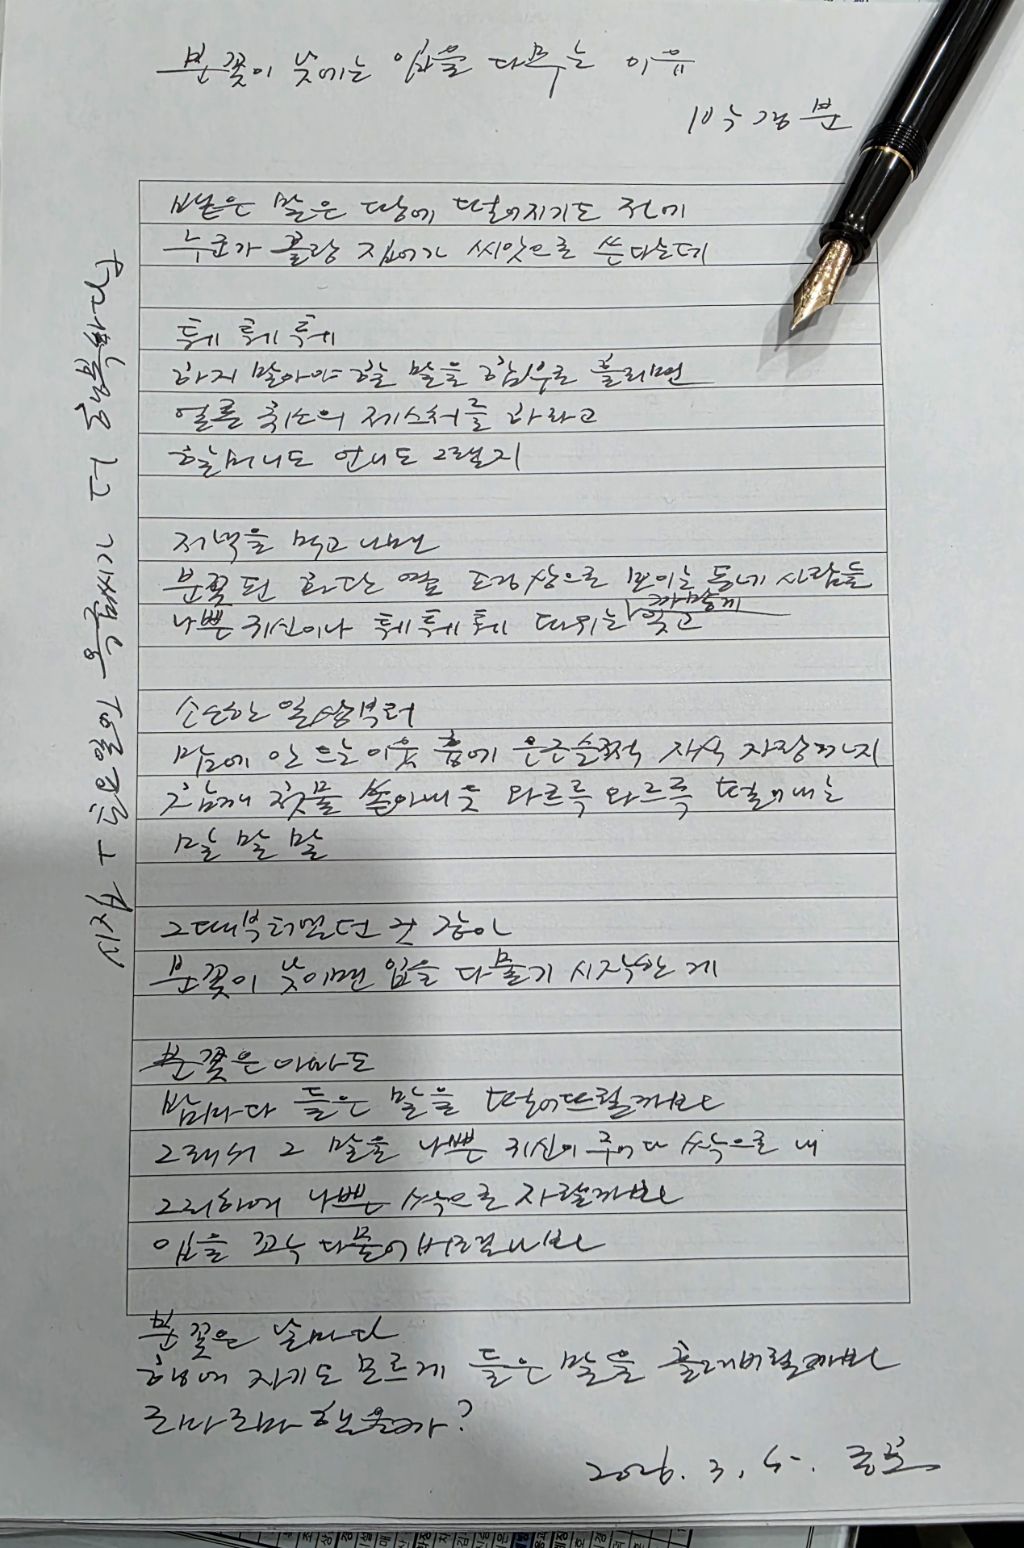 분꽃이 낮에는 입을 다무는 이유
박경분
뱉은 말은 땅에 떨어지기도 전에
누군가 홀랑 집어가 씨앗으로 쓴다는데
퉤 퉤 퉤
하지 말아야 할 말을 함부로 흘리면
얼른 취소의 제스처를 하라고
할머니도 언니도 그랬지
저녁을 먹고 나면
분꽃 핀 화단 옆 평상으로 모이는 동네 사람들
나쁜 귀신이나 퉤 퉤 퉤 따위는 까맣게 잊고
소소한 일상부터
맘에 안 드는 이웃 흉에 은근슬쩍 자식 자랑까지
참깨 쏟아내듯 와르륵 와르륵 털어내는
말 말 말
그때부터였던 것 같아
분꽃이 낮이면 입을 다물기 시작한 게
분꽃은 아마도
밤마다 들은 말을 떨어뜨릴까봐
그래서 그 말을 나쁜 귀신이 주어다 싹으로 내
그리하여 나쁜 싹으로 자랄까봐
입을 꼬옥 다물어버렸나봐
분꽃은 날마다
행여 자기도 모르게 들은 말을 흘려버릴까봐
조마조마 했을까?
2026. 3. 5.